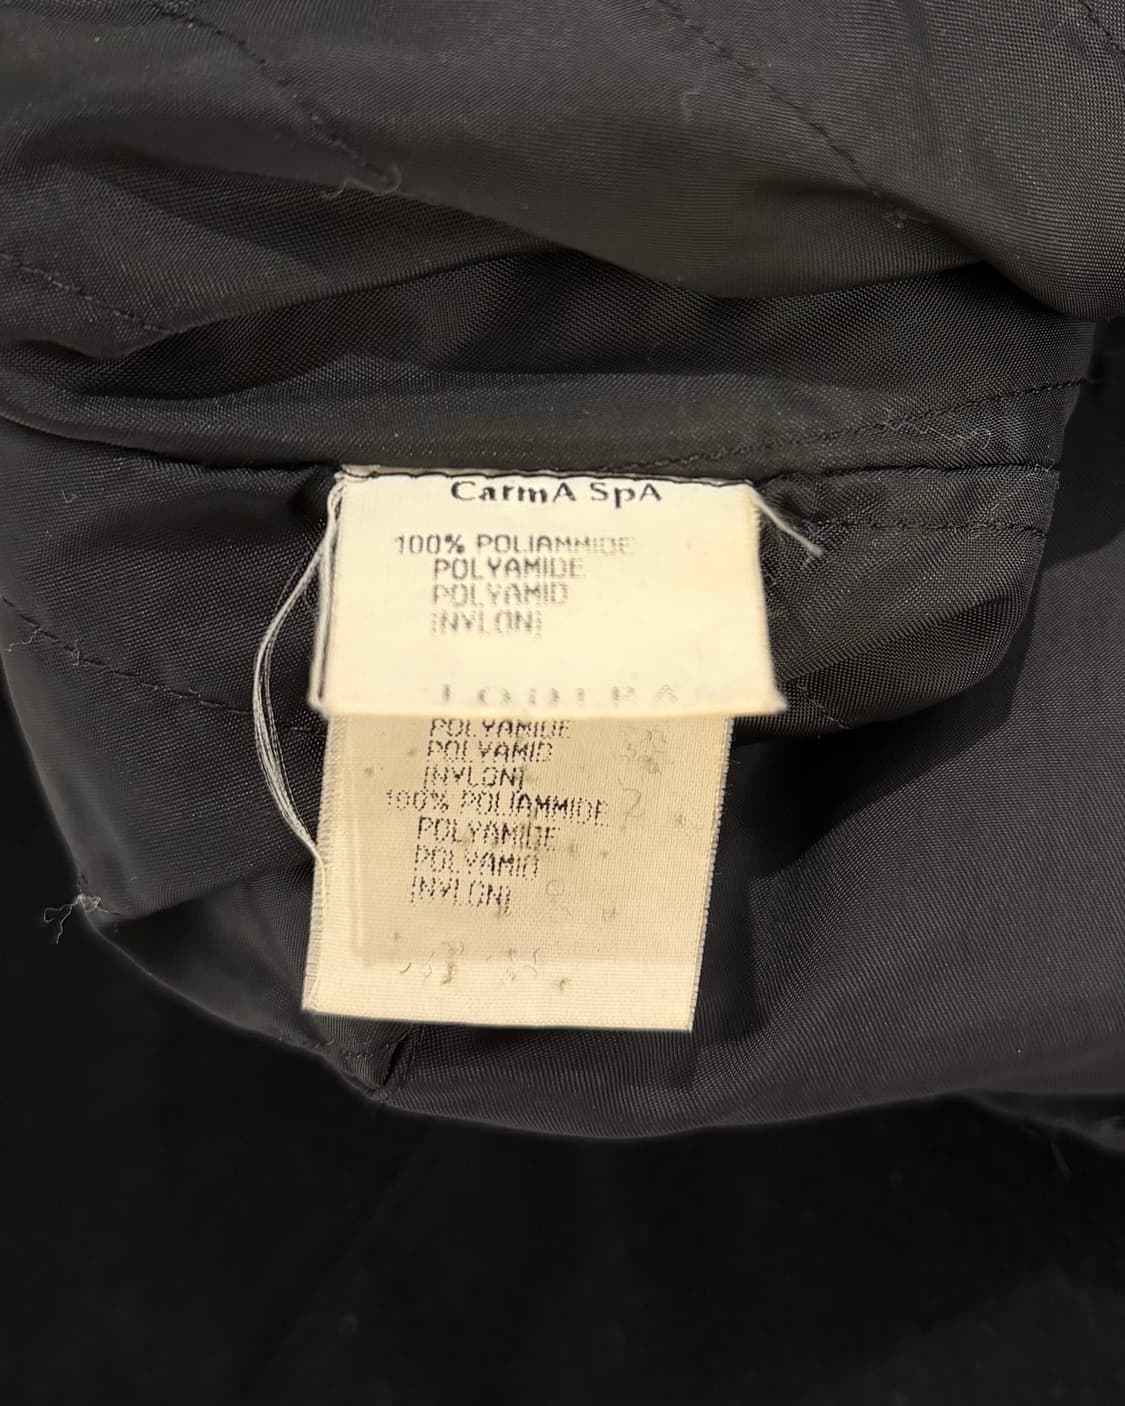 CarmA SpA
100% POLIAMMIDE
POLYAMIDE
POLYAMID
[NYLON]
FODERA
POLYAMIDE
POLYAMID
[NYLON]
100% POLIAMMIDE
POLYAMIDE
POLYAMID
[NYLON]